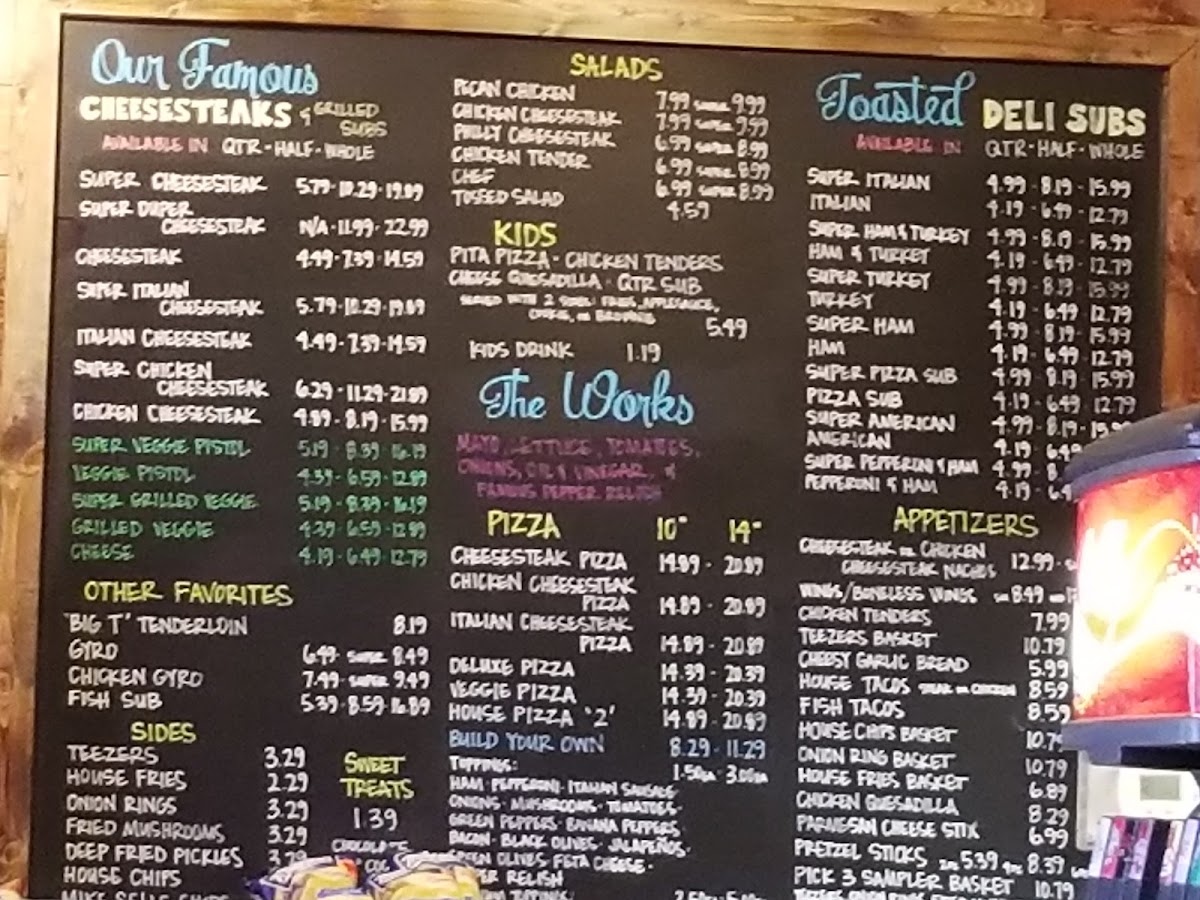 Our Famous
CHEESESTEAKS & GRILLED SUBS
AVAILABLE IN QTR-HALF-WHOLE
SUPER CHEESESTEAK 5.79-10.29-19.89
SUPER DUPER
CHEESESTEAK N/A-11.99-22.99
CHEESESTEAK 4.49-7.39-14.59
SUPER ITALIAN
CHEESESTEAK 5.79-10.29-19.89
ITALIAN CHEESESTEAK 4.49-7.39-14.59
SUPER CHICKEN
CHEESESTEAK 6.29-11.29-21.89
CHICKEN CHEESESTEAK 4.89-8.19-15.99
SUPER VEGGIE PISTOL 5.19-8.39-16.19
VEGGIE PISTOL 4.39-6.59-12.89
SUPER GRILLED VEGGIE 5.19-8.39-16.19
GRILLED VEGGIE 4.39-6.59-12.89
CHEESE 4.19-6.49-12.79
OTHER FAVORITES
"BIG T" TENDERLOIN 8.19
GYRO 6.49- SUPER 8.49
CHICKEN GYRO 7.49- SUPER 9.49
FISH SUB 5.39-8.59-16.89
SIDES
TEEZERS 3.29
HOUSE FRIES 2.29
ONION RINGS 3.29
FRIED MUSHROOMS 3.29
DEEP FRIED PICKLES 3.29
HOUSE CHIPS
SWEET
TREATS
1.39
CHOCOLATE
SALADS
PECAN CHICKEN 7.99 SUPER 9.99
CHICKEN CHEESESTEAK 7.99 SUPER 9.99
PHILLY CHEESESTEAK 6.99 SUPER 8.99
CHICKEN TENDER 6.99 SUPER 8.99
CHEF 6.99 SUPER 8.99
TOSSED SALAD 4.59
KIDS
PITA PIZZA - CHICKEN TENDERS
CHEESE QUESADILLA - QTR SUB
SERVED WITH 2 SIDES: FRIES, APPLESAUCE,
COOKIE, OR BROWNIE 5.49
KIDS DRINK 1.19
The Works
MAYO, LETTUCE, TOMATOES,
ONIONS, OIL & VINEGAR, &
FAMOUS PEPPER RELISH
PIZZA 10" 14"
CHEESESTEAK PIZZA 14.89 - 20.89
CHICKEN CHEESESTEAK
PIZZA 14.89 - 20.89
ITALIAN CHEESESTEAK
PIZZA 14.89 - 20.89
DELUXE PIZZA 14.39 - 20.39
VEGGIE PIZZA 14.39 - 20.39
HOUSE PIZZA "2" 14.89 - 20.89
BUILD YOUR OWN 8.29 - 11.29
TOPPINGS: 1.50EA 3.00EA
HAM - PEPPERONI - ITALIAN SAUSAGE
ONIONS - MUSHROOMS - TOMATOES -
GREEN PEPPERS - BANANA PEPPERS
BACON - BLACK OLIVES - JALAPEÑOS -
GREEN OLIVES - FETA CHEESE -
RELISH
Toasted DELI SUBS
AVAILABLE IN QTR-HALF-WHOLE
SUPER ITALIAN 4.99 - 8.19 - 15.99
ITALIAN 4.19 - 6.49 - 12.79
SUPER HAM & TURKEY 4.99 - 8.19 - 15.99
HAM & TURKEY 4.19 - 6.49 - 12.79
SUPER TURKEY 4.99 - 8.19 - 15.99
TURKEY 4.19 - 6.49 - 12.79
SUPER HAM 4.99 - 8.19 - 15.99
HAM 4.19 - 6.49 - 12.79
SUPER PIZZA SUB 4.99 - 8.19 - 15.99
PIZZA SUB 4.19 - 6.49 - 12.79
SUPER AMERICAN 4.99 - 8.19 - 15.99
AMERICAN 4.19 - 6.49
SUPER PEPPERONI & HAM 4.99 - 8.
PEPPERONI & HAM 4.19 - 6.4
APPETIZERS
CHEESESTEAK OR CHICKEN
CHEESESTEAK NACHOS 12.99
WINGS/BONELESS WINGS 8.49
CHICKEN TENDERS 7.99
TEEZERS BASKET 10.79
CHEESY GARLIC BREAD 5.99
HOUSE TACOS STEAK OR CHICKEN 8.59
FISH TACOS 8.59
HOUSE CHIPS BASKET 10.79
ONION RING BASKET 10.79
HOUSE FRIES BASKET 6.89
CHICKEN QUESADILLA 8.29
PARMESAN CHEESE STIX 6.99
PRETZEL STICKS 5.39 8.39
PICK 3 SAMPLER BASKET 10.79